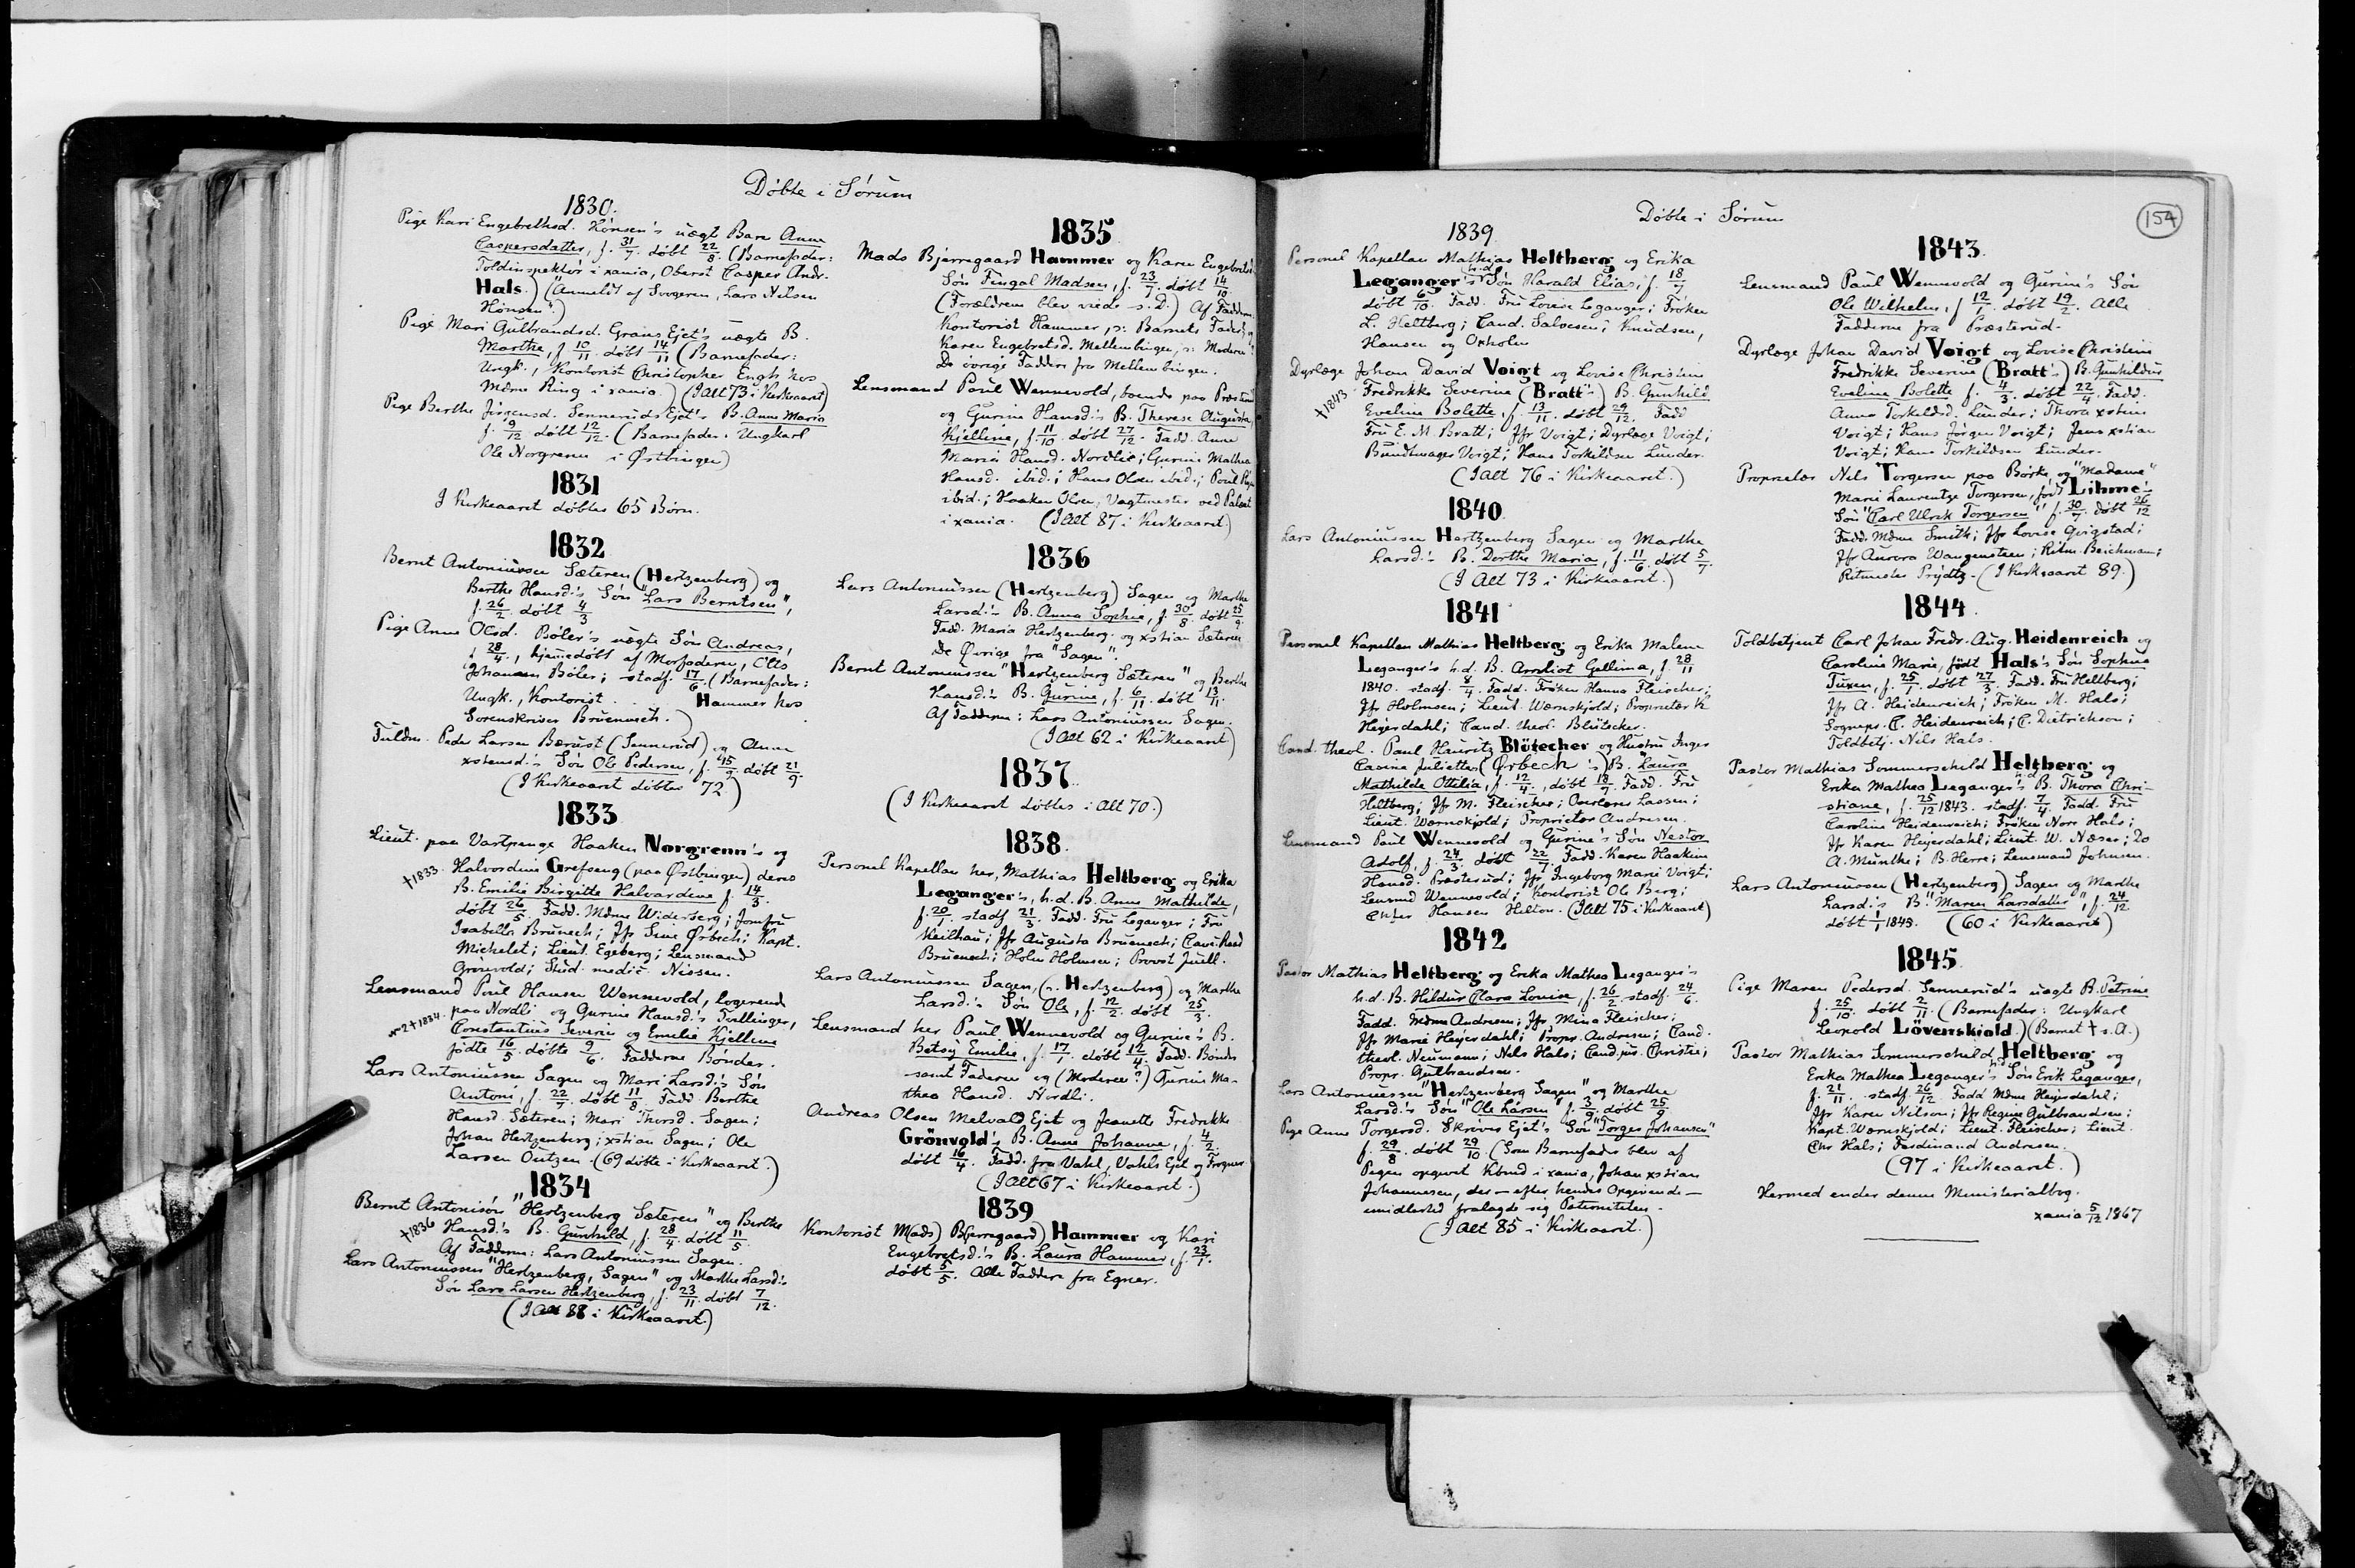 Døbte i Sørum
1830.
Pige Kari Engebrethsd. Hønsen's uægt Barn Anne
Caspersdatter, f. 31/7. døbt 22/8. (Barnefader:
Toldinspektør i xania, Oberst Casper Andr.
Hals.) (Anmeldt af Svogeren, Lars Nilsen
Hønsen.)
Pige Mari Gulbrandsd. Graus Ejet's uægte B.
Marthe, f. 10/11. døbt 14/11 (Barnefader:
Ungk., Kontorist Christopher Engh hos
Mdme Ring i xania.) (I alt 73 i Kirkeaaret)
Pige Berthe Jörgensd. Sennerud's Ejet's B. Anne Maria
f. 9/12 døbt 12/12. (Barnefader: Ungkarl
Ole Norgrenn i Østbingen)
1831
I Kirkeaaret døbtes 65 Børn.
1832
Bernt Antoniussen Sæteren (Hertzenberg) og
Berthe Hansd's Søn "Lars Berntsen",
f. 26/2 døbt 4/3
Pige Anne Olsd. Bøler's uægte Søn Andreas,
f. 28/4, hjemmedøbt af Morfaderen, Ole
Johansen Bøler; stadf. 17/6. (Barnefader:
Ungk., Kontorist . . Hammer hos
Sorenskriver Bruenech.)
Fuldm. Peder Larsen Bærust (Sennerud) og Anne
xstensd's Søn Ole Pedersen, f. 15/9 døbt 21/9
(I Kirkeaaret døbtes 72)
1833
Lieut. paa Vastpenge Haaken Norgrenn's og
†1833. Halvordine Grefseng (paa Østbingen) deres
B. Emilie Birgitte Halvardine f. 14/3.
døbt 26/5. Fadd. Mdme Widerberg; Jomfru
Isabella Brunech; Jfr Sine Ørbech; Kapt.
Michelet; Lieut. Egeberg; Lensmand
Grønvold; Stud. medic. Nissen.
Lensmand Poul Hansen Wennevold, logerende
paa Nordli og Gurine Hansd.'s Tvillinger,
№2†1834. Constantius Severin og Emilie Kjelline
fødte 16/5. døbte 9/6. Fadderne Bønder.
Lars Antoniussen Sagen og Mari Larsd's Søn
Antoni, f. 22/7. døbt 11/8. Fadd. Berthe
Hansd. Sæteren; Mari Thorsd. Sagen;
Johan Hertzenberg; xstian Sagen; Ole
Larsen Ontzen. (69 døbte i Kirkeaaret.)
1834
Bernt Antonisön "Hertzenberg Sæteren" og Berthe
†1836 Hansd.'s B. Gunhild, f. 28/4. døbt 11/5.
Af Fadderne: Lars Antoniussen Sagen.
Lars Antoniussen "Hertzenberg, Sagen" og Marthe Larsd.'s
Søn Lars Larsen Hertzenberg, f. 23/11. døbt 7/12.
(I alt 88 i Kirkeaaret.)
1835
Mads Bjerregaard Hammer og Karen Engebretsd.
Søn Fingal Madsen, f. 23/7. døbt 14/10
(Forældrene blev viede s. D.) Af Fadderne
Kontorist Hammer, ɔ: Barnets Fader; og
Karen Engebretsd. Mellembingen, ɔ: Moderen!
De øvrige Faddere fra Mellembingen.
Lensmand Paul Wennevold, boende paa Præsterud
og Gurine Hansd.'s B. Therese Augusta,
Kjelline, f. 11/10. døbt 27/12. Fadd. Anne
Maria Hansd. Nordlie; Gurine Mathea
Hansd. ibid.; Hans Olsen ibid.; Poul
ibid.; Haaken Olsen, Vagtmester ved Palæet
i xania. (I alt 87 i Kirkeaaret.)
1836
Lars Antoniussen (Hertzenberg) Sagen og Marthe
Larsd.'s B. Anna Sophie, f. 30/8. døbt 25/9.
Fadd. Maria Hertzenberg. og xstian Sæteren
De Øvrige fra "Sagen".
Bernt Antoniussen "Hertzenberg Sæteren" og Berthe
Hansd.'s B. Gurine, f. 6/11. døbt 13/11.
Af Fadderne: Lars Antoniussen Sagen.
(I alt 62 i Kirkeaaret)
1837.
(I Kirkeaaret døbtes i Alt 70.)
1838.
Personel Kapellan her, Mathias Heltberg og Erika
Leganger's, h.d. B. Anne Mathilde,
f. 20/1. stadf 21/3. Fadd. Fru Leganger; Fru
Keilhau; Jfr Augusta Bruenech;
Bruenech; Holm Holmsen; Provst Juell.
Lars Antoniussen Sagen, (ɔ. Hertzenberg) og Marthe
Larsd.'s Søn Ole, f. 12/2. døbt 25/3.
Lensmand her Paul Wennevold og Gurine's B.
Betsy Emilie, f. 17/1. døbt 12/4. Fadd. Bønder
samt Faderen og (Moderen?) Gurine Ma-
thea Hansd. Nordli.
Andreas Olsen Melvald Ejet og Jeanette Fredrikke
Grönvold's B. Anne Johanne, f. 4/2.
døbt 16/4. Fadd. fra Vahl, Vahls Ejet og Frogner
(I alt 67 i Kirkeaaret.)
1839
Kontorist M(ads) B(jerregaard) Hammer og Kari
Engebretsd.'s B. Laura Hammer, f. 23/1.
døbt 5/5. Alle Faddere fra Egner.
Døbte i Sørum
154
1839
Personel Kapellan Mathias Heltberg og Erika
Leganger's h.d. Søn Harald Elias, f. 18/7
døbt 6/10 Fadd. Fru Lovise Leganger; Frøken
L. Heltberg; Cand. Salvesen; Knudsen,
Hansen og Oxholm
Dyrlæge Johan David Voigt og Lovise Christine
†1843. Fredrikke Severine (Bratt's) B. Gunhild
Eveline Bolette, f. 13/11. døbt 29/12. Fadd
Fru E. M. Bratt; Jfr Voigt; Dyrlæge Voigt;
Bundtmager Voigt; Hans Torkildsen Lunder.
(I alt 76 i Kirkeaaret.)
1840
Lars Antoniussen Hertzenberg Sagen og Marthe
Larsd.'s B. Dorthe Maria, f. 11/6. døbt 5/7.
(I Alt 73 i Kirkeaaret.)
1841
Personel Kapellan Mathias Heltberg og Erika Malene
Leganger's h.d. B. Arnliot Gelline, f. 28/11
1840. stadf. 8/4. Fadd. Frøken Hanna Fleischer;
Jfr Holmsen; Lieut. Wærnskjold; Proprietær K
Heyerdahl; Cand. theol. Blütecher.
Cand. theol. Paul Hauritz Blötecher og Hustru Inger
Casine Juliette (Ørbech's) B. "Laura
Mathilde Ottilia, f. 12/4., døbt 18/7. Fadd. Fru
Heltberg; Jfr M. Fleischer; Overlærer Lassen;
Lieut. Wærnskjold; Proprietær Andresen.
Lensmand Paul Wennevold og Gurine's Søn Nestor
Adolf, f. 24/3. døbt 22/7. Fadd. Karen Haakine
Hansd. Præsterud; Jfr Ingeborg Marie Voigt;
Lensmd Wennevold; Kontorist Ole Berg;
Hansen Hilton. (I alt 75 i Kirkeaaret)
1842
Pastor Mathias Heltberg og Erika Mathea Leganger's
h.d. B. Hildur Clara Louise, f. 26/2. stadf. 24/6.
Fadd. Mdme Andresen; Jfr Mina Fleischer;
Jfr Marie Heyerdahl; Propr. Andresen; Cand.
theol. Neumann; Nils Hals; Cand. jur. Christie;
Propr. Gulbrandsen.
Lars Antoniussen "Hertzenberg Sagen" og Marthe
Larsd.'s Søn "Ole Larsen" f. 3/9. døbt 25/9
Pige Anne Torgersd. Skrivers Ejet's Søn "Torger Johansen"
f. 29/8. døbt 29/10. (Som Barnefader blev af
Pigen opgivet Kbmd i xania, Johan xstian
Johannesen, der — efter hendes Opgivende —
imidlertid fralagde sig Paterniteten.
(I alt 85 i Kirkeaaret.)
1843.
Lensmand Paul Wennevold og Gurine's Søn
Ole Wilhelm, f 12/1. døbt 19/2. Alle
Fadderne fra Præsterud.
Dyrlæge Johan David Voigt og Lovise Christine
Fredrikke Severine (Bratt's) B. Gunhildur
Eveline Bolette f. 4/3. døbt 22/4. Fadd.
Anne Torkildsd. Lunder; Thora xstine
Voigt; Hans Jørgen Voigt; Jens xstian
Voigt; Hans Torkildsen Lunder.
Proprietær Nils Torgersen paa Børke, og "Madame"
Marie Laurentze Torgersen, født Lihme's
Søn "Carl Ulrik Torgersen" f. 30/7. døbt 26/12
Fadd. Mdme Smith; Jfr Lovise Qvigstad;
Jfr Aurora Wangensteen; Ritm. Beichmann;
Ritmester Prydtz. (I Kirkeaaret 89.)
1844.
Toldbetjent Carl Johan Fredr. Aug. Heidenreich og
Caroline Marie, født Hals's Søn Sophus
Tuxen, f. 25/1. døbt 27/3. Fadd. Fru Heltberg;
Jfr A. Heidenreich; Frøken M. Hals;
Sognepr. C. Heidenreich; C. Dietrichson;
Toldbetj. Nils Hals.
Pastor Mathias Sommerscheld Heltberg og
Erika Mathea Leganger's h.d. B. Thora Chri-
stiane, f. 25/12 1843. stadf. 7/4. Fadd. Fru
Caroline Heidenreich; Frøken Nora Hals;
Jfr Karen Heyerdahl; Lieut. W. Næser; Do
A. Munthe; B. Herre; Lensmand Johnsen.
Lars Antoniussen (Hertzenberg) Sagen og Marthe
Larsd.'s B. "Maren Larsdatter", f. 24/12.
døbt 1/1 1845. (60 i Kirkeaaret)
1845.
Pige Maren Pedersd. Sennerud's uægte B. Petrine
f. 25/10. døbt 2/11. (Barnefader: Ungkarl
Leopold Lövenskiold.) (Barnet † s. A.)
Pastor Mathias Sommerscheld Heltberg og
Erika Mathea Leganger's h.d. Søn Erik Leganger,
f. 21/11. stadf. 26/12 Fadd Mdme Heyerdahl;
Jfr Karen Nilson; Jfr Regine Gulbrandsen;
Kapt. Wærnskjold; Lieut. Fleischer; Lieut.
Chr Hals; Ferdinand Andresen.
(97 i Kirkeaaret.)
Hermed ender denne Ministerialbog.
xania 5/12 1867